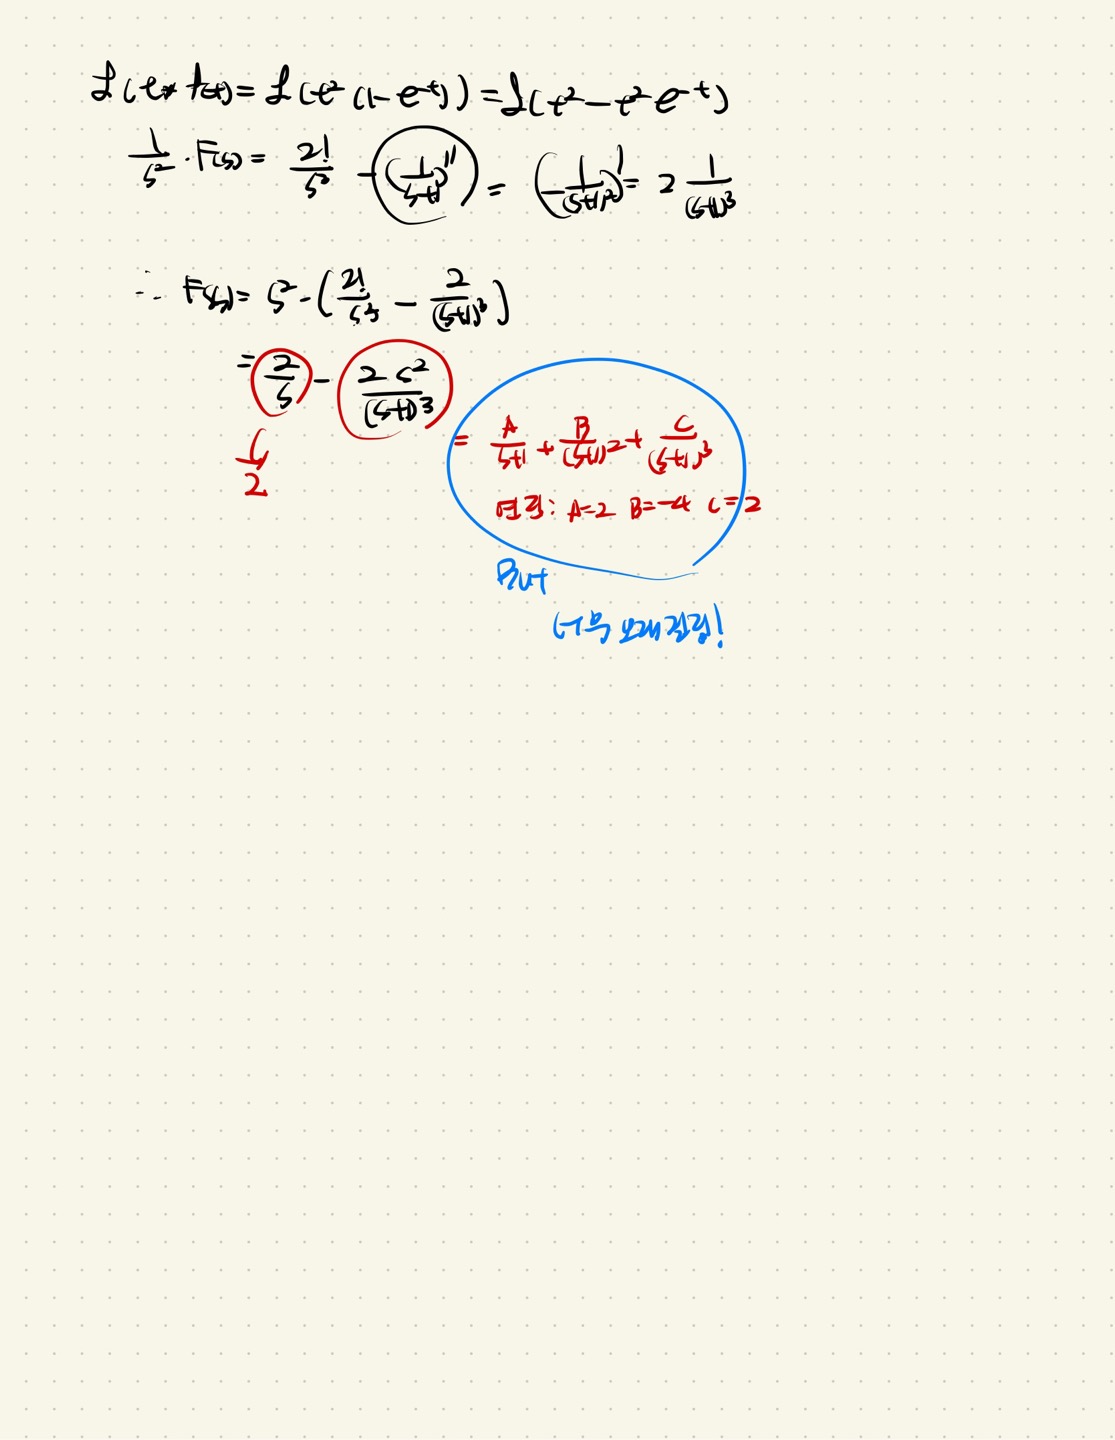 L(t * f(t)) = L(t² (1 - e^-t)) = L(t² - t² e^-t)
1/s² · F(s) = 2!/s³ - (1/(s+1))'' = (-1/(s+1)²)' = 2 1/(s+1)³
∴ F(s) = s² · (2!/s³ - 2/(s+1)³)
= 2/s - 2s²/(s+1)³ = A/(s+1) + B/(s+1)² + C/(s+1)³
연립: A=2 B=-4 C=2
But
너무 오래걸림!